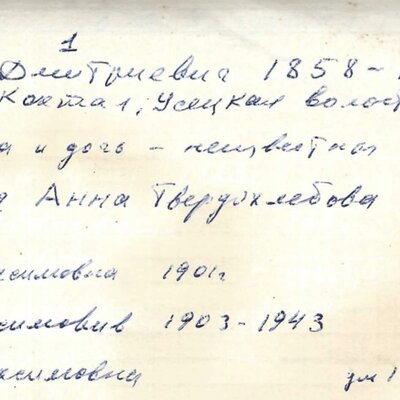 1
Дмитриевич 1858-
Коктал, Усецкая волост
а и дочь - неизвестная
Анна Твердохлебова
симовна 1901г
симович 1903-1943
симовна ум 1